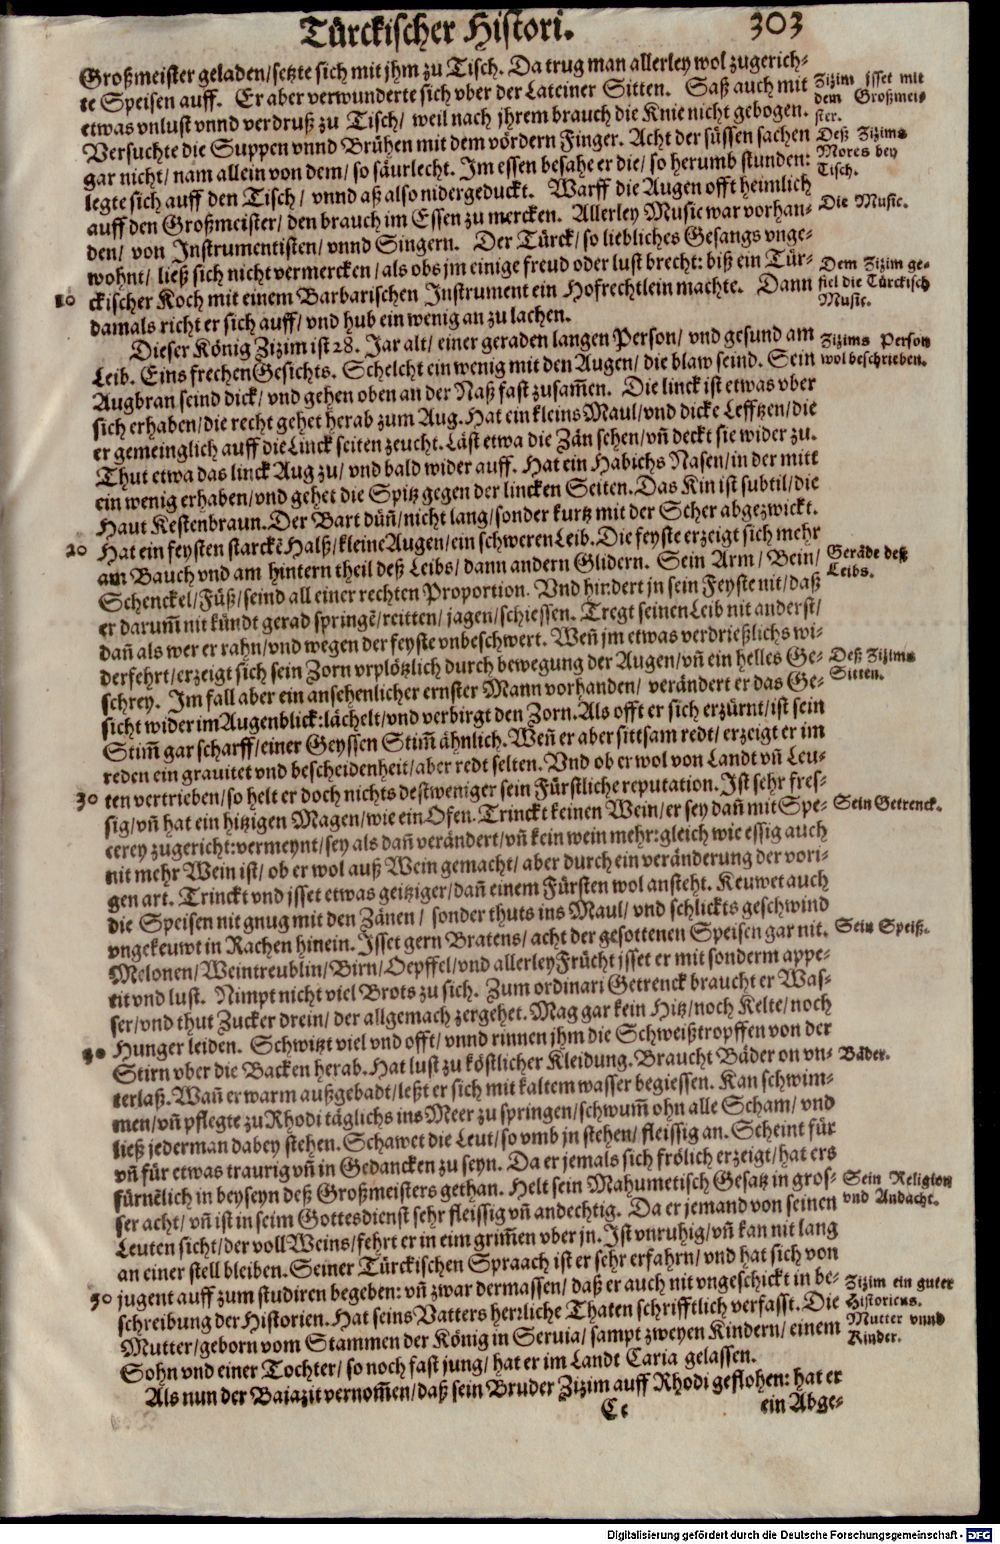 Türckischer Histori. 303
Großmeister geladen/setzte sich mit jhm zu Tisch. Da trug man allerley wol zugerich-
te Speisen auff. Er aber verwunderte sich vber der Lateiner Sitten. Saß auch mit
etwas vnlust vnnd verdruß zu Tisch/ weil nach jhrem brauch die Knie nicht gebogen.
Versuchte die Suppen vnnd Brühen mit dem vördern Finger. Acht der süssen sachen
gar nicht/ nam allein von dem/ so säurlecht. Im essen besahe er die/ so herumb stunden:
legte sich auff den Tisch/ vnnd aß also nidergeduckt. Warff die Augen offt heimlich
auff den Großmeister/ den brauch im Essen zu mercken. Allerley Music war vorhan-
den/ von Instrumentisten/ vnnd Singern. Der Türck/ so liebliches Gesangs vnge-
wohnt/ ließ sich nicht vermercken/ als obs jm einige freud oder lust brecht: biß ein Tür-
10 ckischer Koch mit einem Barbarischen Instrument ein Hofrechtlein machte. Dann
damals richt er sich auff/ vnd hub ein wenig an zu lachen.
Zizim jsset mit
dem Großmeis-
ster.
Deß Zizims
Mores bey
Tisch.
Die Music.
Dem Zizim ge-
fiel die Türckisch
Music.
Dieser König Zizim ist 28. Jar alt/ einer geraden langen Person/ vnd gesund am
Leib. Eins frechen Gesichts. Schelcht ein wenig mit den Augen/ die blaw seind. Sein
Augbran seind dick/ vnd gehen oben an der Naß fast zusam̃en. Die linck ist etwas vber
sich erhaben/die recht gehet herab zum Aug. Hat ein kleins Maul/vnd dicke Lefftzen/die
er gemeinglich auff die Linck seiten zeucht. Läst etwa die Zän sehen/vñ deckt sie wider zu.
Thut etwa das linck Aug zu/ vnd bald wider auff. Hat ein Habichs Nasen/in der mitt
ein wenig erhaben/vnd gehet die Spitz gegen der lincken Seiten. Das Kin ist subtil/die
Haut Kestenbraun. Der Bart düñ/nicht lang/sonder kurtz mit der Scher abgezwickt.
20 Hat ein feysten starckẽ Halß/kleine Augen/ein schweren Leib. Die feyste erzeigt sich mehr
am Bauch vnd am hintern theil deß Leibs/ dann andern Glidern. Sein Arm/ Bein/
Schenckel/Füß/seind all einer rechten Proportion. Vnd hindert jn sein Feyste nit/daß
er darum̃ nit kündt gerad springẽ/reitten/ jagen/schiessen. Tregt seinen Leib nit anderst/
dañ als wer er rahn/vnd wegen der feyste vnbeschwert. Weñ jm etwas verdrießlichs wi-
derfehrt/erzeigt sich sein Zorn vrplötzlich durch bewegung der Augen/vñ ein helles Ge-
schrey. Im fall aber ein ansehenlicher ernster Mann vorhanden/ verändert er das Ge-
sicht wider im Augenblick: lächelt/vnd verbirgt den Zorn. Als offt er sich erzürnt/ist sein
Stim̃ gar scharff/einer Geyssen Stim̃ ähnlich. Weñ er aber sittsam redt/ erzeigt er im
reden ein grauitet vnd bescheidenheit/aber redt selten. Vnd ob er wol von Landt vñ Leu-
30 ten vertrieben/so helt er doch nichts destweniger sein Fürstliche reputation. Ist sehr fres-
sig/vñ hat ein hitzigen Magen/wie ein Ofen. Trinckt keinen Wein/er sey dañ mit Spe-
cerey zugericht:vermeynt/sey als dañ verändert/vñ kein wein mehr:gleich wie essig auch
nit mehr Wein ist/ ob er wol auß Wein gemacht/ aber durch ein veränderung der vori-
gen art. Trinckt vnd jsset etwas geitziger/dañ einem Fürsten wol ansteht. Keuwet auch
die Speisen nit gnug mit den Zänen/ sonder thuts ins Maul/ vnd schlickts geschwind
vngekeuwt in Rachen hinein. Jsset gern Bratens/ acht der gesottenen Speisen gar nit.
Melonen/Weintreublin/Birn/Oepffel/vnd allerley Frücht jsset er mit sonderm appe-
tit vnd lust. Nimpt nicht viel Brots zu sich. Zum ordinari Getrenck braucht er Was-
ser/vnd thut Zucker drein/ der allgemach zergehet. Mag gar kein Hitz/noch Kelte/noch
40 Hunger leiden. Schwitzt viel vnd offt/ vnnd rinnen jhm die Schweißtropffen von der
Stirn vber die Backen herab. Hat lust zu köstlicher Kleidung. Braucht Bäder on vn-
terlaß. Wañ er warm außgebadt/leßt er sich mit kaltem wasser begiessen. Kan schwim-
men/vñ pflegte zu Rhodi täglichs ins Meer zu springen/schwum̃ ohn alle Scham/ vnd
ließ jederman dabey stehen. Schawet die Leut/so vmb jn stehen/fleissig an. Scheint für
vñ für etwas traurig vñ in Gedancken zu seyn. Da er jemals sich frölich erzeigt/hat ers
fürnẽlich in beyseyn deß Großmeisters gethan. Helt sein Mahumetisch Gesatz in gros-
ser acht/ vñ ist in seim Gottesdienst sehr fleissig vñ andechtig. Da er jemand von seinen
Leuten sicht/der voll Weins/fehrt er in eim grim̃en vber jn. Ist vnruhig/vñ kan nit lang
an einer stell bleiben. Seiner Türckischen Spraach ist er sehr erfahrn/vnd hat sich von
50 jugent auff zum studiren begeben: vñ zwar dermassen/ daß er auch nit vngeschickt in be-
schreibung der Historien. Hat seins Vatters herrliche Thaten schrifftlich verfasst. Die
Mutter/geborn vom Stammen der König in Seruia/ sampt zweyen Kindern/ einem
Sohn vnd einer Tochter/ so noch fast jung/ hat er im Landt Caria gelassen.
Zizims Person
wol beschrieben.
Geräde deß
Leibs.
Deß Zizims
Sitten.
Sein Getrenck.
Sein Speiß.
Bäder.
Sein Religion
vnd Andacht.
Zizim ein guter
Historicus.
Mutter vnnd
Kinder.
Als nun der Baiazit vernom̃en/daß sein Bruder Zizim auff Rhodi geflohen: hat er
Cc ein Abge-
Digitalisierung gefördert durch die Deutsche Forschungsgemeinschaft - DFG